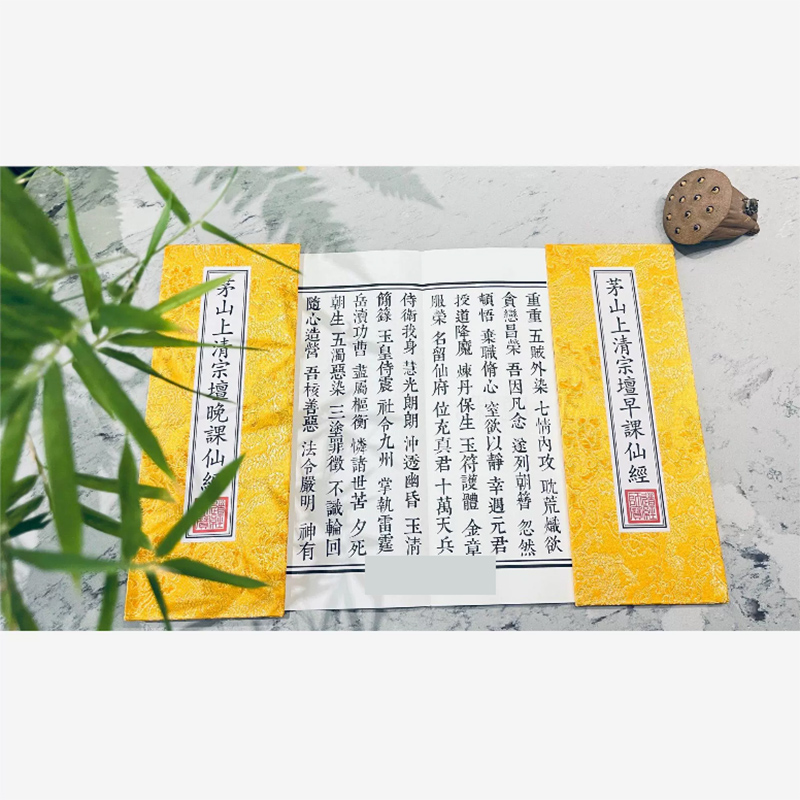 茅山上清宗壇早課仙經
重重 五賊外染 七情內攻 耽荒熾欲
貪戀昌榮 吾因凡念 遂列朝簪 忽然
頓悟 棄職脩心 窒欲以靜 幸遇元君
授道降魔 煉丹保生 玉符護體 金章
服榮 名留仙府 位充真君 十萬天兵
侍衛我身 慧光朗朗 沖透幽昏 玉清
簡籙 玉皇侍宸 社令九州 掌執雷霆
岳瀆功曹 盡屬樞衡 憐諸世苦 夕死
朝生 五濁惡染 三塗罪徵 不識輪回
隨心造營 吾核善惡 法令嚴明 神有
茅山上清宗壇晚課仙經